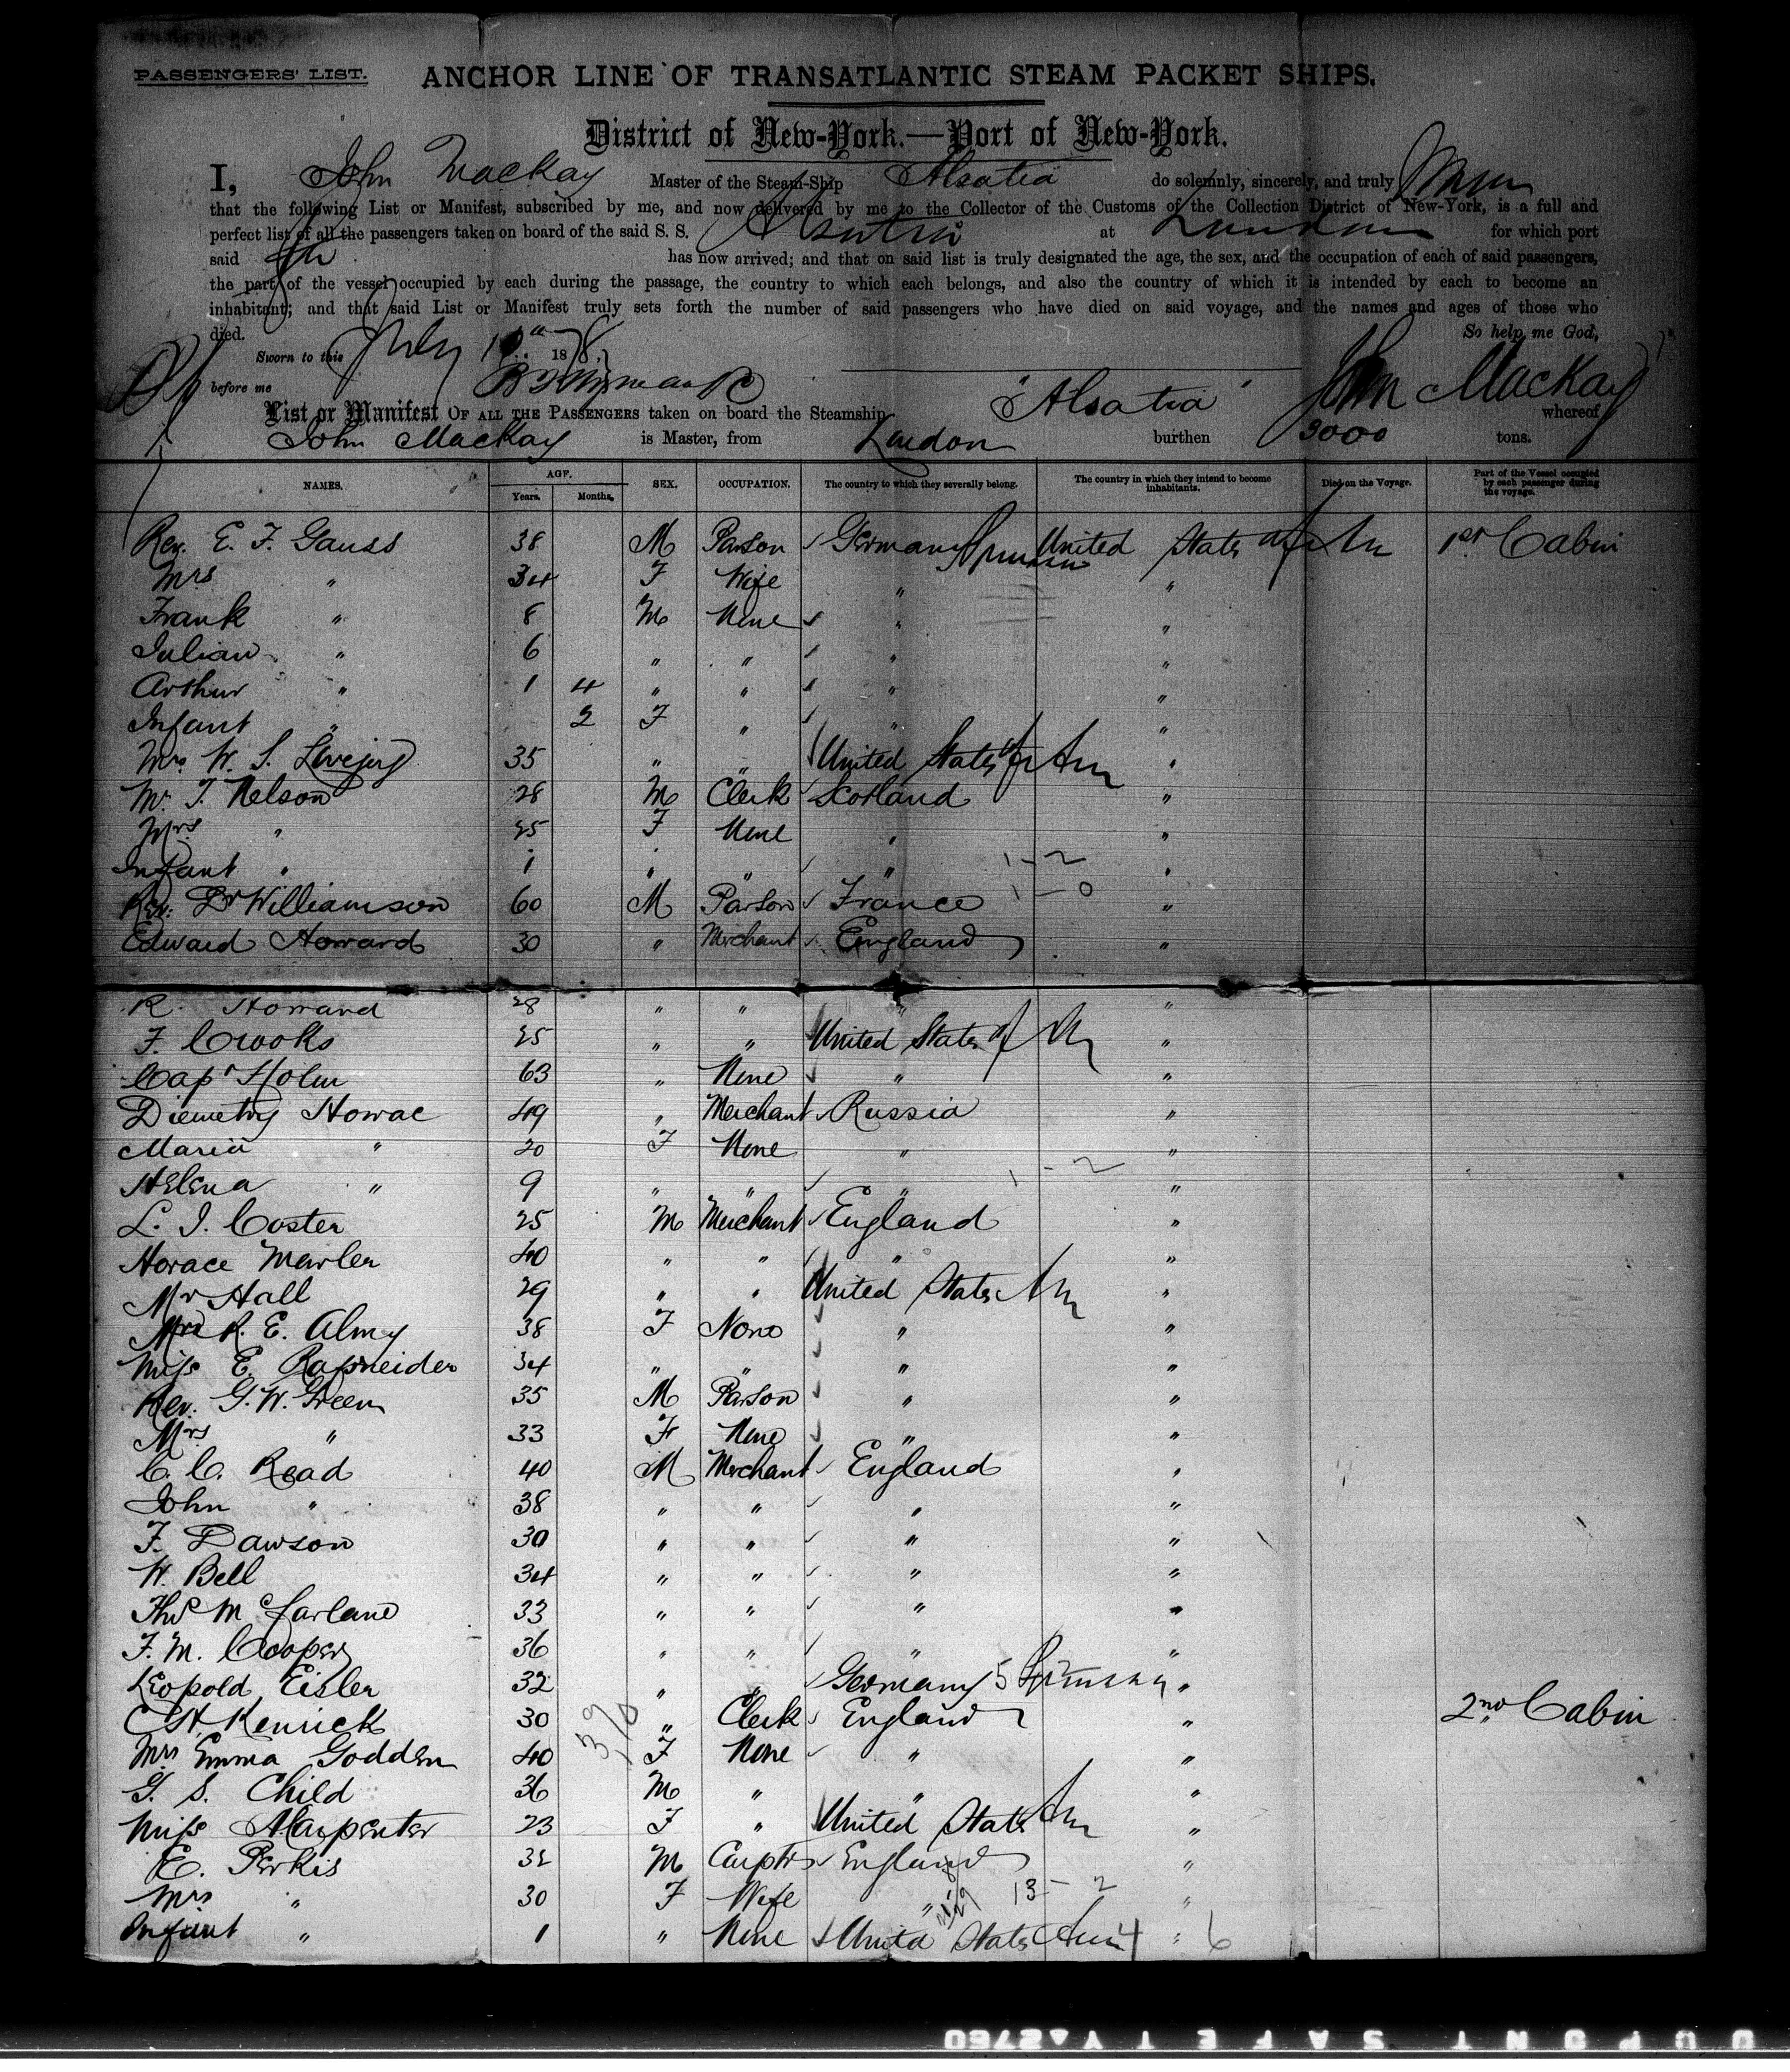 PASSENGERS' LIST.
ANCHOR LINE OF TRANSATLANTIC STEAM PACKET SHIPS.
District of New-York.—Port of New-York.
I, John Mackay Master of the Steam-Ship Alsatia do solemnly, sincerely, and truly swear
that the following List or Manifest, subscribed by me, and now delivered by me to the Collector of the Customs of the Collection District of New-York, is a full and
perfect list of all the passengers taken on board of the said S. S. Alsatia at London for which port
said has now arrived; and that on said list is truly designated the age, the sex, and the occupation of each of said passengers,
the part of the vessel occupied by each during the passage, the country to which each belongs, and also the country of which it is intended by each to become an
inhabitant; and that said List or Manifest truly sets forth the number of said passengers who have died on said voyage, and the names and ages of those who
died. So help me God,
Sworn to this July 1878,
before me John MacKay
List or Manifest OF ALL THE PASSENGERS taken on board the Steamship "Alsatia" whereof
John MacKay is Master, from London burthen 3000 tons.
NAMES. AGE. Years. Months. SEX. OCCUPATION. The country to which they severally belong. The country in which they intend to become inhabitants. Died on the Voyage. Part of the Vessel occupied by each passenger during the voyage.
Rev. E. F. Gauss 38 M Parson Germany United States of Am 1st Cabin
Mrs " 34 F Wife " "
Frank " 8 M None " "
Julian " 6 " " " "
Arthur " 1 4 " " " "
Infant " 2 F " " "
Mrs W. S. Lovejoy 35 " " United States of Am "
Mr. T. Nelson 28 M Clerk Scotland "
Mrs " 25 F None " "
Infant " 1 " " " " 1-2
Rev. Dr Williamson 60 M Parson France 1-0 "
Edward Howard 30 " Merchant England "
R. Howard 28 " " " "
F. Crooks 25 " " United States of Am "
Capt Holm 63 " None " "
Diemetry Howac 49 " Merchant Russia "
Maria " 20 F None " "
Helena " 9 " " " 1-2 "
L. J. Coster 25 M Merchant England "
Horace Marler 40 " " " "
Mr Hall 29 " " United States Am "
Mrs R. E. Almy 38 F None " "
Miss E. Rapneider 34 " " " "
Rev. G. W. Green 35 M Parson " "
Mrs " 33 F None " "
C. C. Read 40 M Merchant England "
John " 38 " " " "
F. Dawson 30 " " " "
W. Bell 34 " " " "
Thos McFarlane 33 " " " "
F. M. Cooper 36 " " " "
Leopold Eisler 32 " " Germany 5 "
C H. Kenrick 30 " Clerk England " 2nd Cabin
Mrs Emma Godden 40 F None " "
G. S. Child 36 M " " "
Miss Carpenter 23 F " United States Am "
E. Perkis 32 M Carptr England "
Mrs " 30 F Wife " 13-2 "
Infant " 1 " None United States Am 4 " 6
DUPONT SAFETY 2760